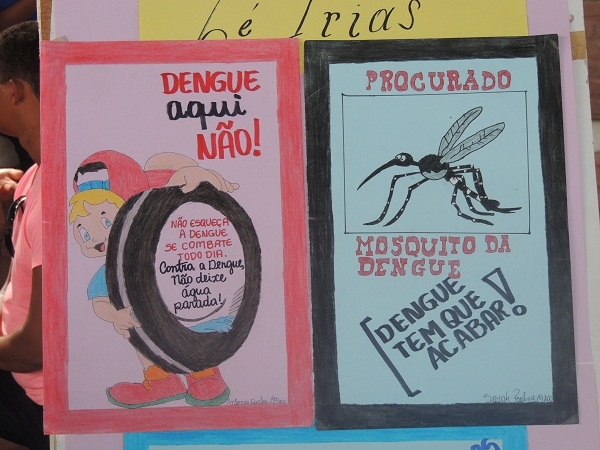 Lé Frias
DENGUE
aqui
NÃO!
NÃO ESQUEÇA
A DENGUE
SE COMBATE
TODO DIA.
Contra a Dengue,
Não deixe
água
parada!
PROCURADO
MOSQUITO DA
DENGUE
DENGUE
TEM QUE
ACABAR!
Sarah